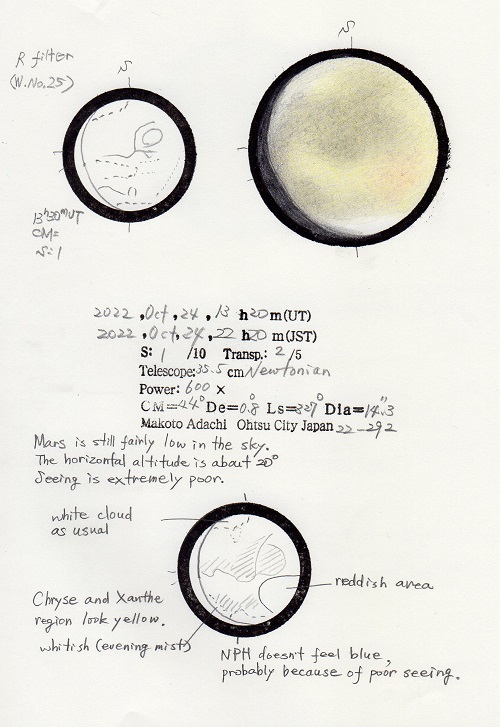 R filter
(W.No.25)
S
S
13h30mUT
CM=
S:1
2022 ,Oct ,24 ,13 h20m(UT)
2022 ,Oct,24 ,22 h20 m(JST)
S: 1 /10 Transp.: 2 /5
Telescope:35.5 cm Newtonian
Power: 600 ×
CM=44° De=0.8° Ls=327° Dia=14".3
Makoto Adachi Ohtsu City Japan 22-292
Mars is still fairly low in the sky.
The horizontal altitude is about 20°
Seeing is extremely poor.
white cloud
as usual
reddish area
Chryse and Xanthe
region look yellow.
whitish (evening mist)
NPH doesn't feel blue,
probably because of poor seeing.